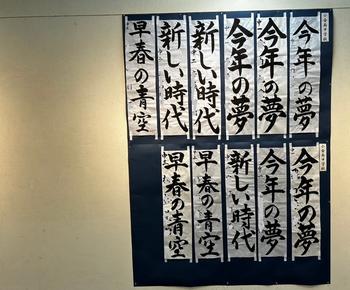 今年の夢
今年の夢
今年の夢
新しい時代
新しい時代
早春の青空
今年の夢
今年の夢
新しい時代
早春の青空
早春の青空